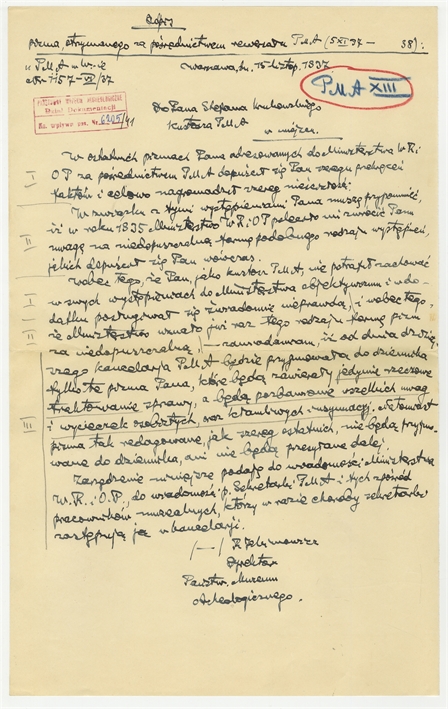 Odpis
pisma, otrzymanego za pośrednictwem sekretariatu P.M.A (5 XI 37 — 38):
P.M.A
Nr 1157-VI/37
Warszawa, dn. 15 listop. 1937
P.M.A XIII
Dział Dokumentacji
6205/41
Do Pana Stefana Krukowskiego
Kustosza P.M.A
w miejscu.
W ostatnich pismach Pana adresowanych do Ministerstwa W.R.i
O.P za pośrednictwem P.M.A dopuścił się Pan szeregu przekręceń
faktów i celowo nagromadził szereg nieścisłości.
W związku z tymi wystąpieniami Pana muszę przypomnieć,
iż w roku 1935 Ministerstwo W.R.i O.P poleciło mi zwrócić Panu
uwagę na niedopuszczalną formę podobnego rodzaju wystąpień,
jakich dopuścił się Pan wówczas.
Wobec tego, że Pan, jako kustosz P.M.A, nie potrafił zachować
w swych wystąpieniach do Ministerstwa objektywizmu i w do-
datku posługiwał się świadomie nieprawdą, i wobec tego,
że Ministerstwo uznało już raz tego rodzaju formę pism
za niedopuszczalną, — zawiadamiam, iż od dnia dzisiej-
szego kancelaria P.M.A będzie przyjmowała do dziennika
tylko te pisma Pana, które będą zawierały jedynie rzeczowe
traktowanie sprawy, a będą pozbawione wszelkich uwag
i wycieczek osobistych, oraz kłamliwych insynuacji.
pisma tak redagowane, jak szereg ostatnich, nie będą przyjmo-
wane do dziennika, ani nie będą przesyłane dalej.
Zarządzenie niniejsze podaję do wiadomości Ministerstwa
W.R. i O.P., do wiadomości p. Sekretarki P.M.A i tych spośród
pracowników muzealnych, którzy w razie choroby sekretarki
zastępują ją w kancelarji.
/—/ R. Jakimowicz
Dyrektor
Państw. Muzeum
Archeologicznego.
I
II
I
II
III